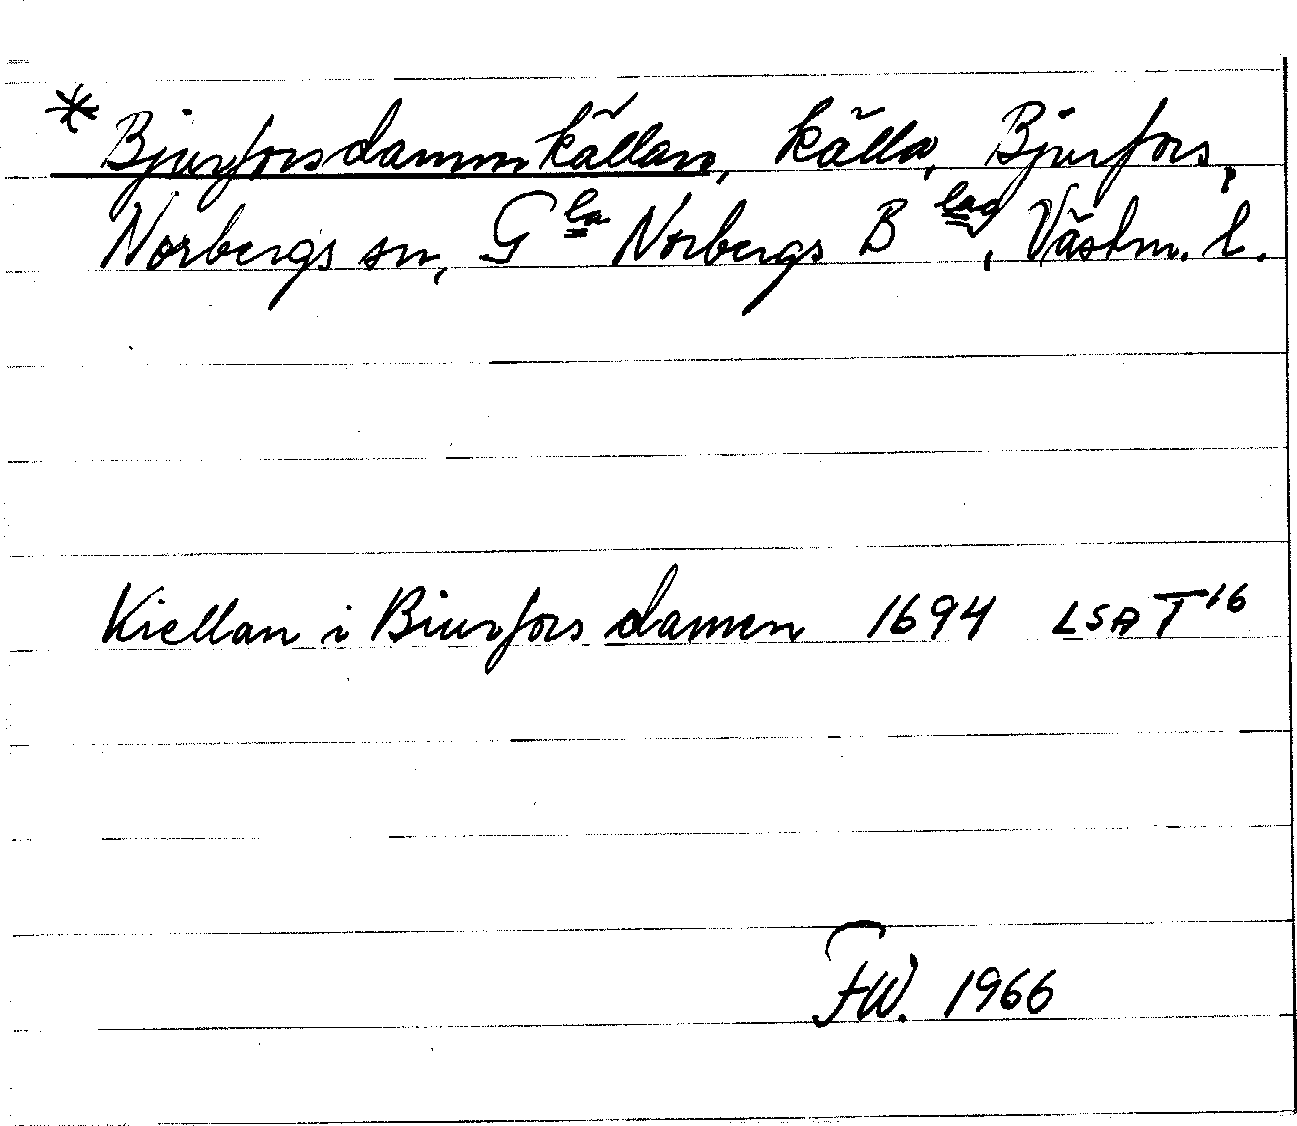 * Bjurforsdammkällan, källa, Bjurfors,
Norbergs sn, Gla Norbergs Blag, Västm. l.
Kiellan i Biurfors damen 1694 LSA T16
FW. 1966